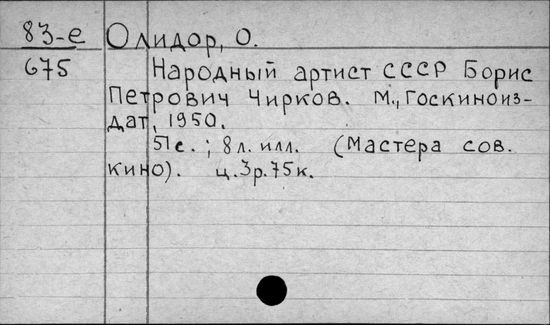 83-е Олидор, О.
675 Народный артист СССР Борис
Петрович Чирков. М., Госкиноиз-
дат, 1950.
51 с. ; 8 л. илл. (Мастера сов.
кино). ц. 3 р. 75 к.